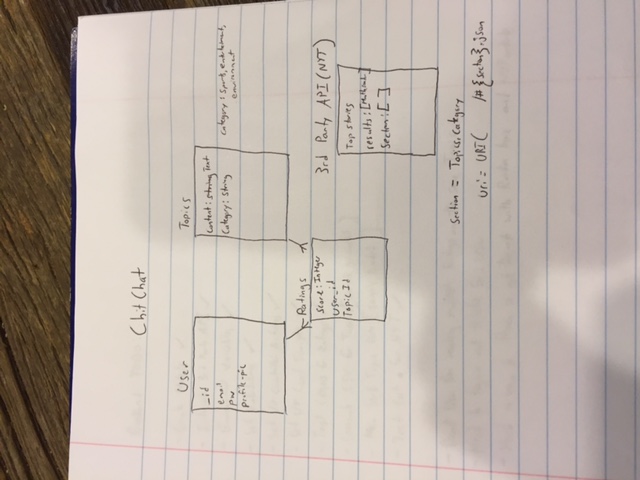 ChitChat
User
_id
email
pw
profile-pic
Topics
Content: string Text
Category: String
category: sports, entertainment,
environment
Ratings
Score: Integer
user_id
Topic Id
3rd Party API (NYT)
Top stories
results: [
Section: [ ]
Section = Topics.category
uri = URI( /#{section}.json